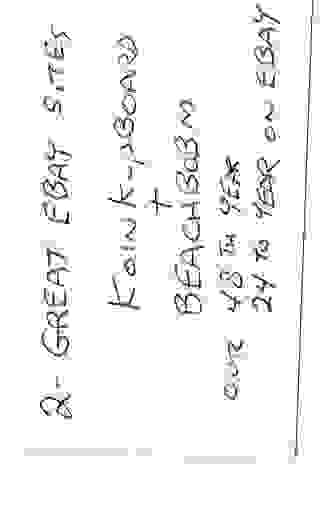 2- GREAT EBAY SITES
KOIN K-PBOARD
+
BEACHBOBM
OUR 48 TH YEAR
24 TO YEAR ON EBAY